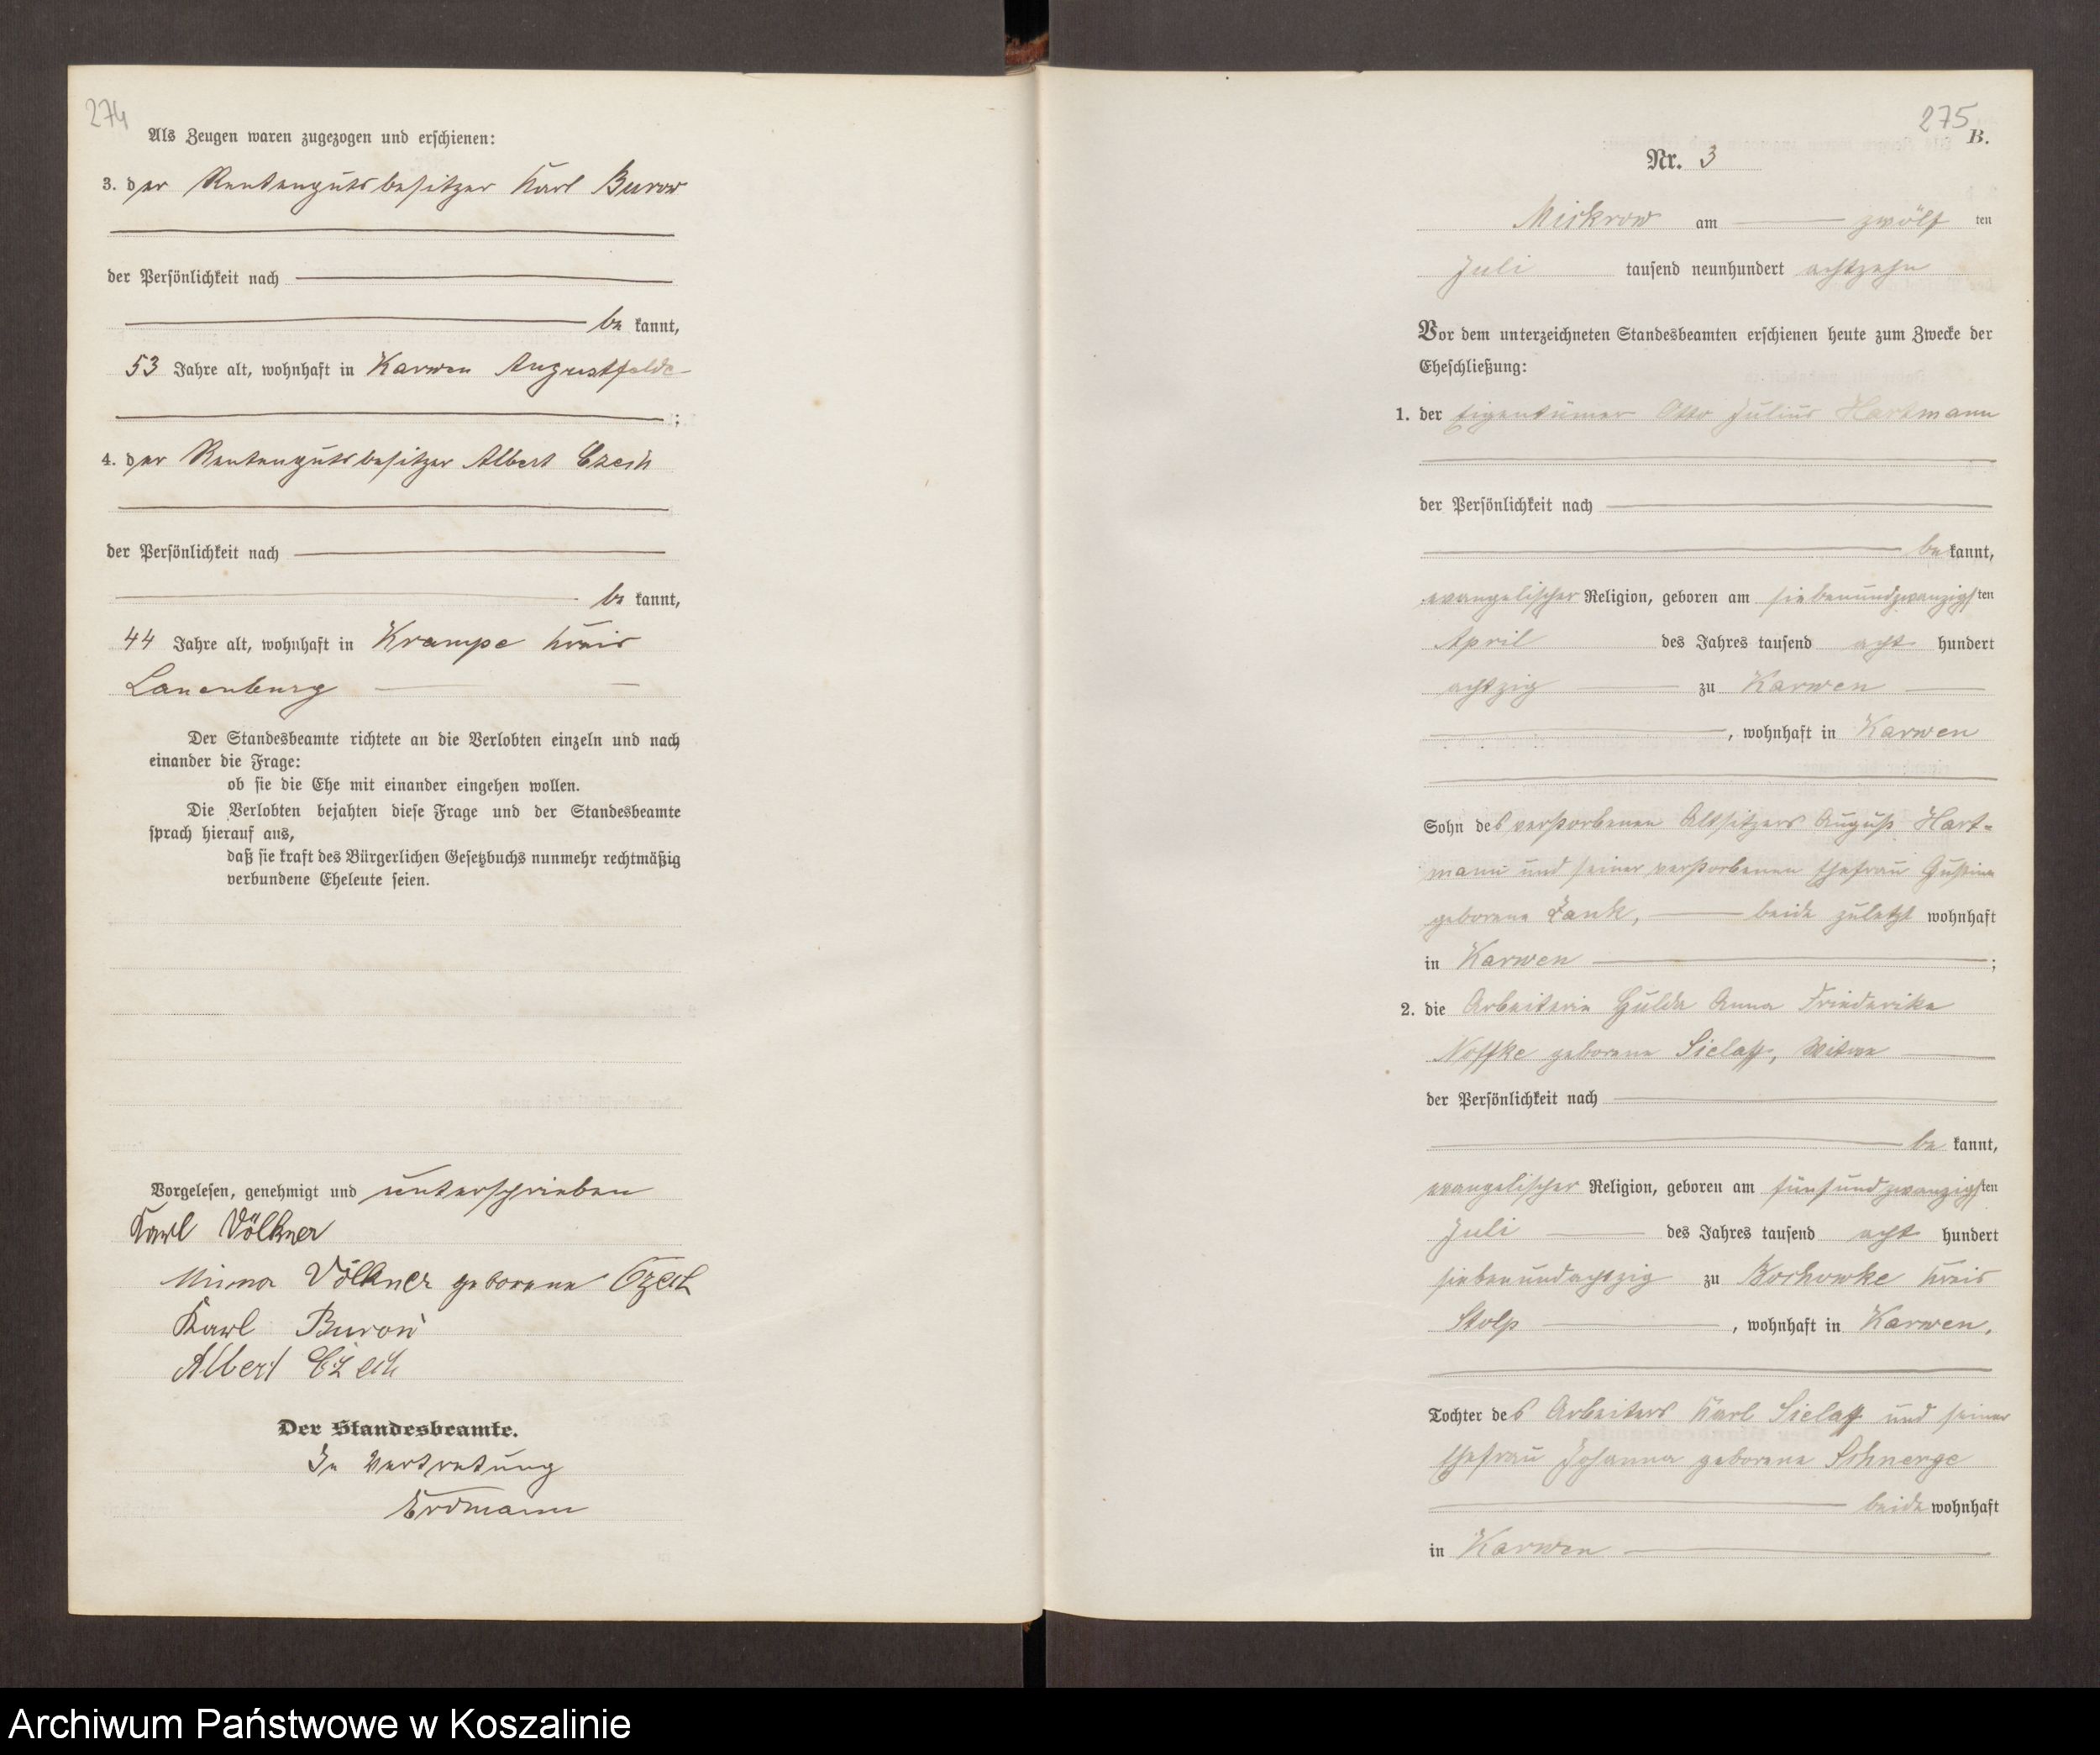 274
Als Zeugen waren zugezogen und erschienen:
3. der Rentengutsbesitzer Karl Burow
der Persönlichkeit nach
be kannt,
53 Jahre alt, wohnhaft in Karwen Augustfelde
;
4. der Rentengutsbesitzer Albert Czech
der Persönlichkeit nach
be kannt,
44 Jahre alt, wohnhaft in Krampe Kreis
Lauenburg
Der Standesbeamte richtete an die Verlobten einzeln und nach
einander die Frage:
ob sie die Ehe mit einander eingehen wollen.
Die Verlobten bejahten diese Frage und der Standesbeamte
sprach hierauf aus,
daß sie kraft des Bürgerlichen Gesetzbuchs nunmehr rechtmäßig
verbundene Eheleute seien.
Vorgelesen, genehmigt und unterschrieben
Karl Völkner
Minna Völkner geborene Czech
Karl Burow
Albert Czech
Der Standesbeamte.
In Vertretung
Erdmann
275
B.
Nr. 3
Mickrow am zwölf ten
Juli tausend neunhundert achtzehn
Vor dem unterzeichneten Standesbeamten erschienen heute zum Zwecke der
Eheschließung:
1. der Eigentümer Otto Julius Hartmann
der Persönlichkeit nach
be kannt,
evangelischer Religion, geboren am siebenundzwanzigsten
April des Jahres tausend acht hundert
achtzig zu Karwen
, wohnhaft in Karwen
Sohn des verstorbenen Altsitzers August Hart-
mann und seiner verstorbenen Ehefrau Gustine
geborene Zank, beide zuletzt wohnhaft
in Karwen ;
2. die Arbeiterin Hulda Anna Friederike
Noffke geborene Sielaff, Witwe
der Persönlichkeit nach
be kannt,
evangelischer Religion, geboren am fünfundzwanzigsten
Juli des Jahres tausend acht hundert
siebenundachtzig zu Bochowke Kreis
Stolp , wohnhaft in Karwen,
Tochter des Arbeiters Karl Sielaff und seiner
Ehefrau Johanna geborene Schnerge
beide wohnhaft
in Karwen
Archiwum Państwowe w Koszalinie